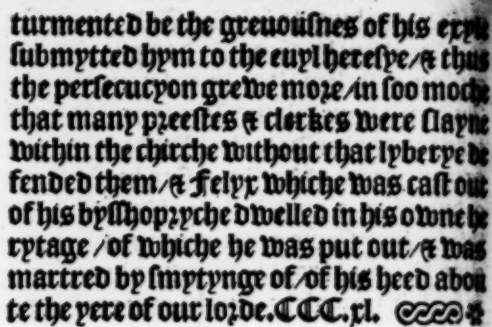 turmented be the greuouſnes of his exyle
ſubmytted hym to the euyl hereſye/⁊ thus
the perſecucyon grewe more/in ſoo moche
that many preeſtes ⁊ clerkes were ſlayne
within the chirche without that lyberye de
fended them/⁊ Felyx whiche was caſt out
of his byſſhopryche dwelled in his owne he
rytage /of whiche he was put out/⁊ was
martred by ſmytynge of/of his heed abou
te the yere of our lorde.CCC.xl.